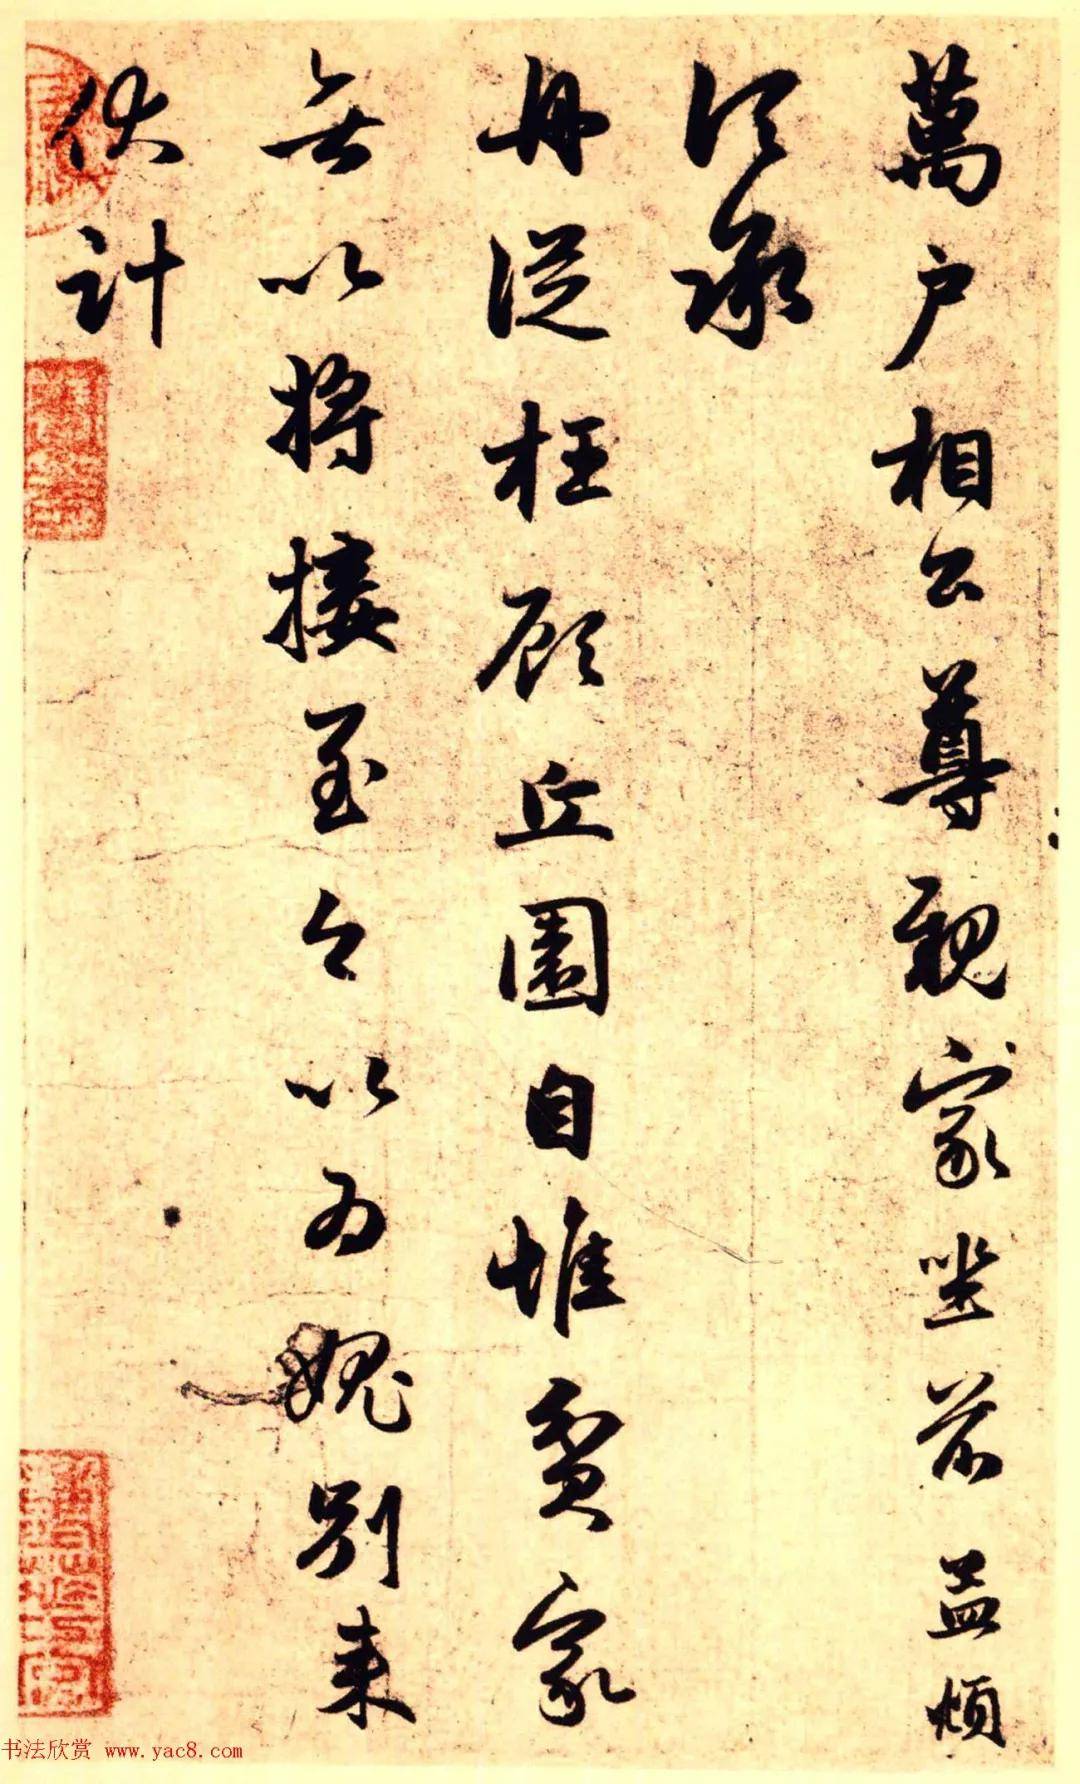 萬户相公尊親家坐前孟頫
頃承
舟從枉顧丘園自惟貧家
無以將接至今以為愧別來
伏計
书法欣赏 www.yac8.com